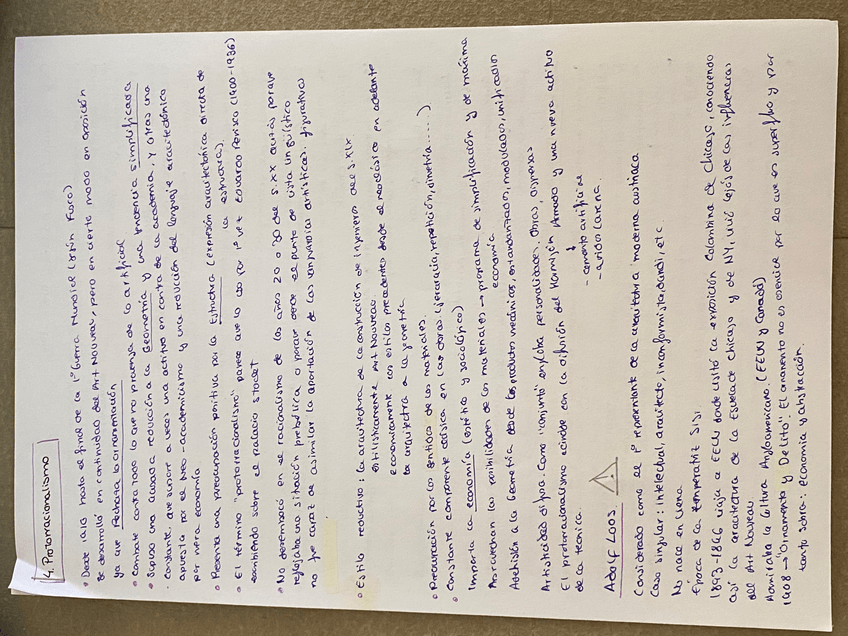 4. Protorracionalismo
• Desde 1910 hasta el final de la 1ª Guerra Mundial (León Furco)
Se desarrolla en continuidad del Art Nouveau, pero en cierto modo en oposición
ya que Rechaza la ornamentación
• Combate contra todo lo que no provenga de lo artificial
• Supuso una acusada reducción a la Geometría y una tendencia simplificadora
constante, que supone a veces una actitud en contra de la academia. Y otras una
apuesta por el Neo-academicismo y una reducción del lenguaje arquitectónico
por mera economía
• Presenta una preocupación positiva por la Estructura (expresión arquitectónica directa de
la estructura).
• El término "protorracionalismo" parece que lo usó por 1ª vez Eduardo Pérsico (1900-1936)
escribiendo sobre el palacio Stoclet
• No desembocó en el racionalismo de los años 20 o 30 del S.XX quizás porque
reflejaba una situación prebélica o porque desde el punto de vista lingüístico
no fue capaz de asimilar la aportación de las vanguardias artísticas figurativas
• Estilo reductivo: la arquitectura de la construcción de Ingenieros del S.XIX
estilísticamente Art Nouveau
económicamente con estilos precedentes desde el neoclásico en adelante
la arquitectura a la geometría
• Preocupación por los sentidos de los materiales.
• Constante componente clásica en las obras (jerarquía, repetición, simetría.....)
Importa la economía (estético y sociológico)
Aprovechan las posibilidades de los materiales → programa de simplificación y de máxima
economía
Adhesión a la Geometría desde los productos mecánicos, estandarizados, modulados, unificados
Artisticidad difusa. Como "conjunto" engloba personalidades, obras, dispersas
El protorracionalismo coincide con la difusión del Hormigón Armado y una nueva actitud
de la técnica.
- cemento artificial
- aridos (arena.
Adolf LOOS
Considerado como el 1º representante de la arquitectura moderna austriaca
Caso singular: intelectual, arquitecto, inconformista, dandi, etc.
No nace en Viena
Época de la
1893-1896 viaja a EEUU donde visitó la exposición Colombina de Chicago, conociendo
así la arquitectura de la Escuela de Chicago y de NY, vivió lejos de las influencias
del Art Nouveau
Admiraba la Cultura Angloamericana (EEUU y Canadá)
1908 → "Ornamento y Delito". El ornamento no es esencial por lo que es superfluo y por
tanto sobra: economía y abstracción.